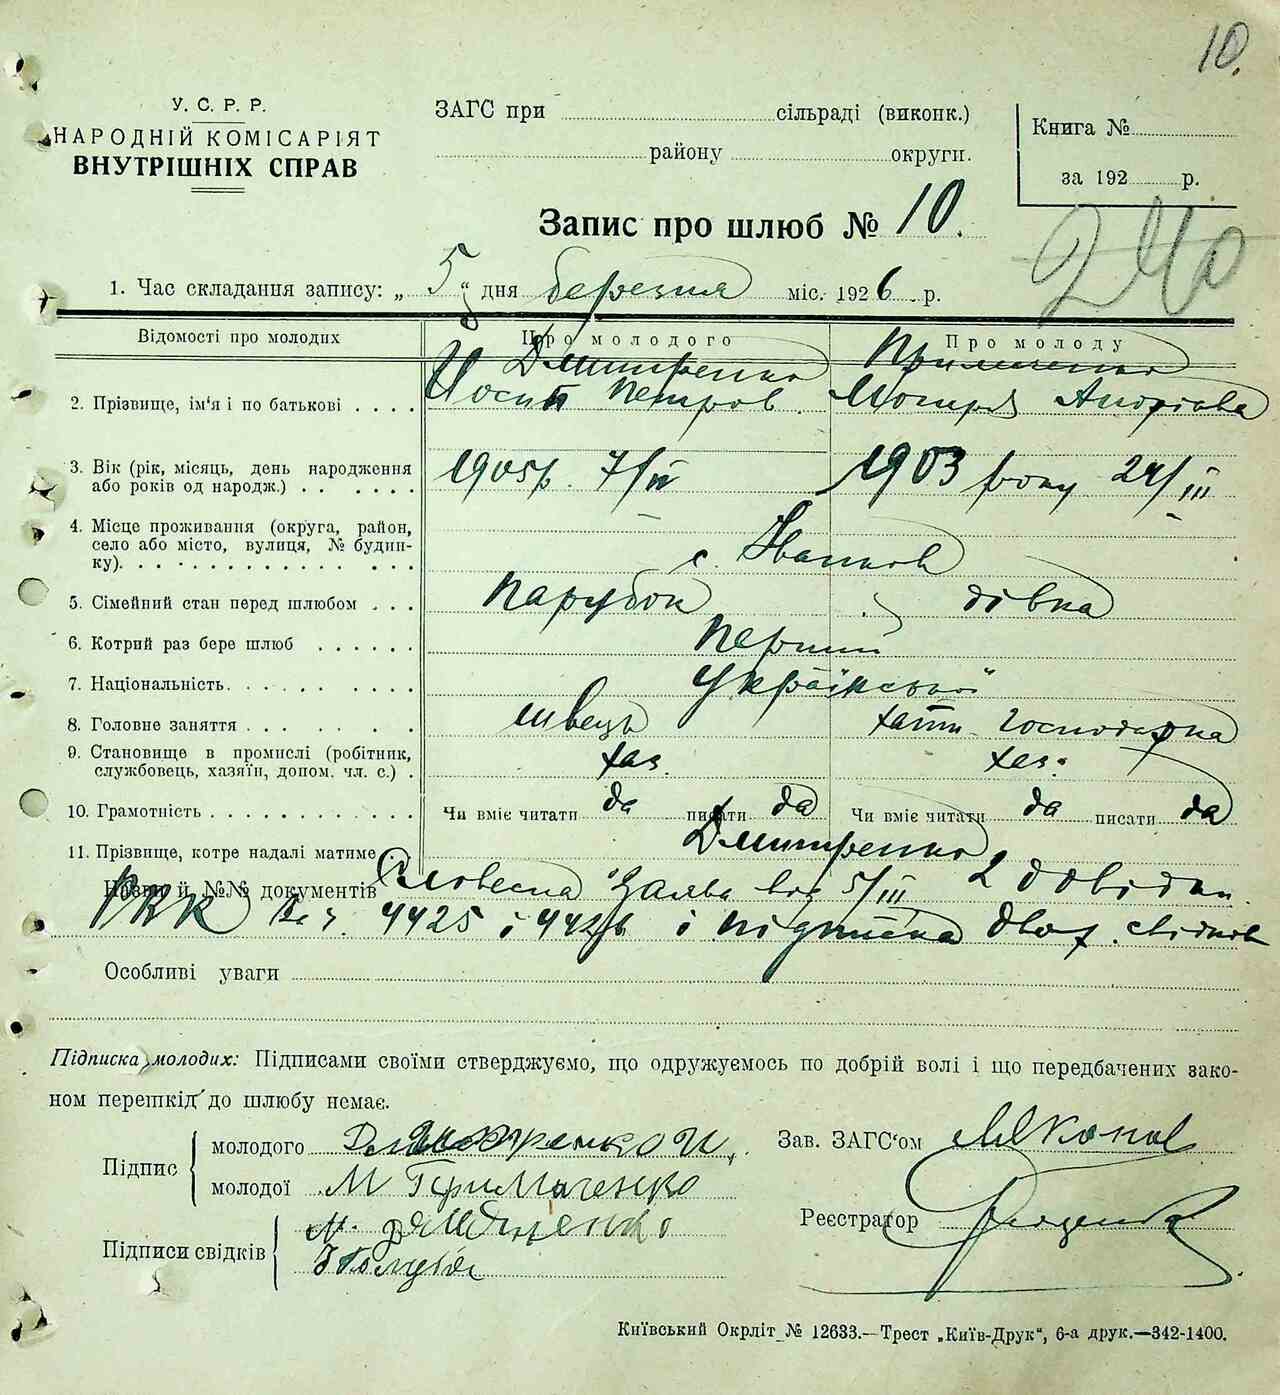 10.
У. С. Р. Р.
НАРОДНІЙ КОМІСАРІЯТ
ВНУТРІШНІХ СПРАВ
ЗАГС при сільраді (виконк.)
району округи.
Книга №
за 192 р.
Запис про шлюб № 10.
1. Час складання запису: „ 5 “ дня березня міс. 1926 р.
Відомості про молодих Про молодого Про молоду
Дмитренко
2. Прізвище, ім‘я і по батькові Йосип Петров.
3. Вік (рік, місяць, день народження 1905р. 1903 року 24/III
або років од народж.)
4. Місце проживання (округа, район,
село або місто, вулиця, № будин-
ку). с. Іванков
5. Сімейний стан перед шлюбом парубок дівка
6. Котрий раз бере шлюб перший
7. Національність. Української
8. Головне заняття швець хатн. господарка
9. Становище в промислі (робітник, хаз. хаз.
службовець, хазяїн, допом. чл. с.)
10. Грамотність Чи вміє читати да писати да Чи вміє читати да писати да
11. Прізвище, котре надалі матиме Дмитренко
Назви й №№ документів Словесна заява від 5/III 2 довідки
РВК 4425 і 4426 і підписка двох свідків
Особливі уваги
Підписка молодих: Підписами своїми стверджуємо, що одружуємось по добрій волі і що передбачених зако-
ном перешкід до шлюбу немає.
Підпис
молодого Дмитренко И.
молодої М
Підписи свідків
Зав. ЗАГС‘ом
Реєстратор
Київський Окрліт № 12633.—Трест „Київ-Друк“, 6-а друк.—342-1400.